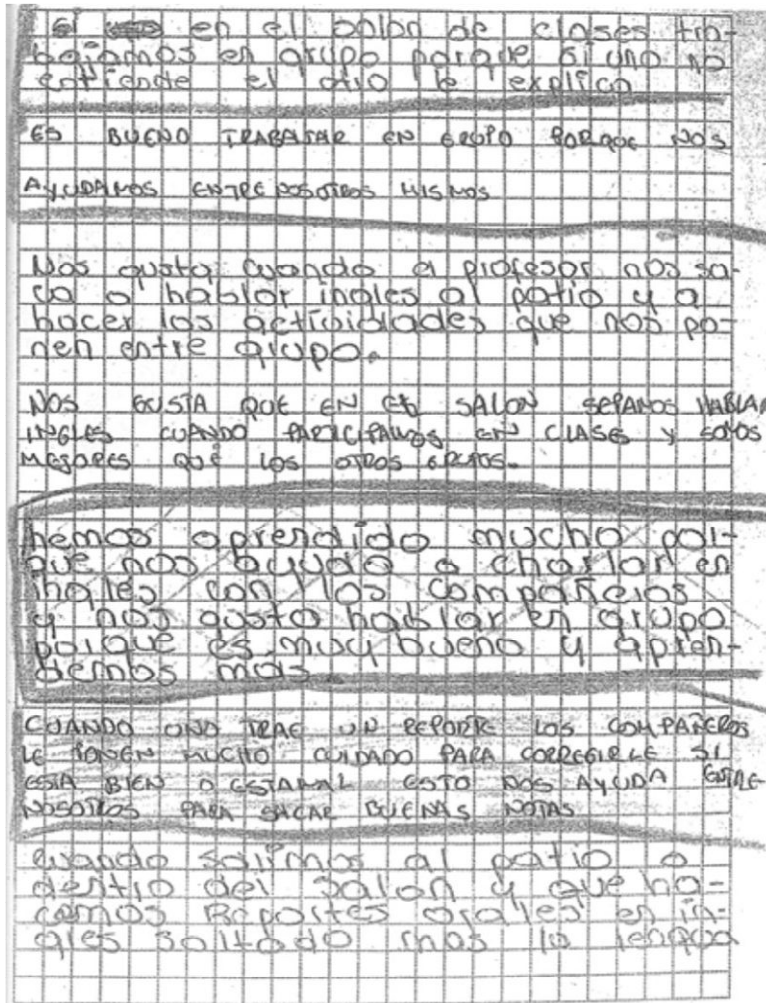 Si en el salon de clases tra-
bajamos en grupo porque si uno no
entiende el otro le explica
ES BUENO TRABAJAR EN GRUPO PORQUE NOS
AYUDAMOS ENTRE NOSOTROS MISMOS
Nos gusta cuando el profesor nos sa-
ca a hablar ingles al patio y a
hacer las actividades que nos po-
nen entre grupo.
NOS GUSTA QUE EN EL SALON SEPAMOS HABLAR
INGLES CUANDO PARTICIPAMOS EN CLASES Y SOMOS
MEJORES QUE LOS OTROS GRUPOS.
hemos aprendido mucho por-
que nos ayuda a charlar en
ingles con los compañeros
y nos gusta hablar en grupo
porque es muy bueno y apren-
demos mas
CUANDO UNO TRAE UN REPORTE LOS COMPAÑEROS
LE PONEN MUCHO CUIDADO PARA CORREGIRLE SI
ESTA BIEN O ESTA MAL ESTO NOS AYUDA ENTRE
NOSOTROS PARA SACAR BUENAS NOTAS
cuando salimos al patio o
dentro del salon y que ha-
cemos Reportes orales en in-
gles soltado mas la lengua